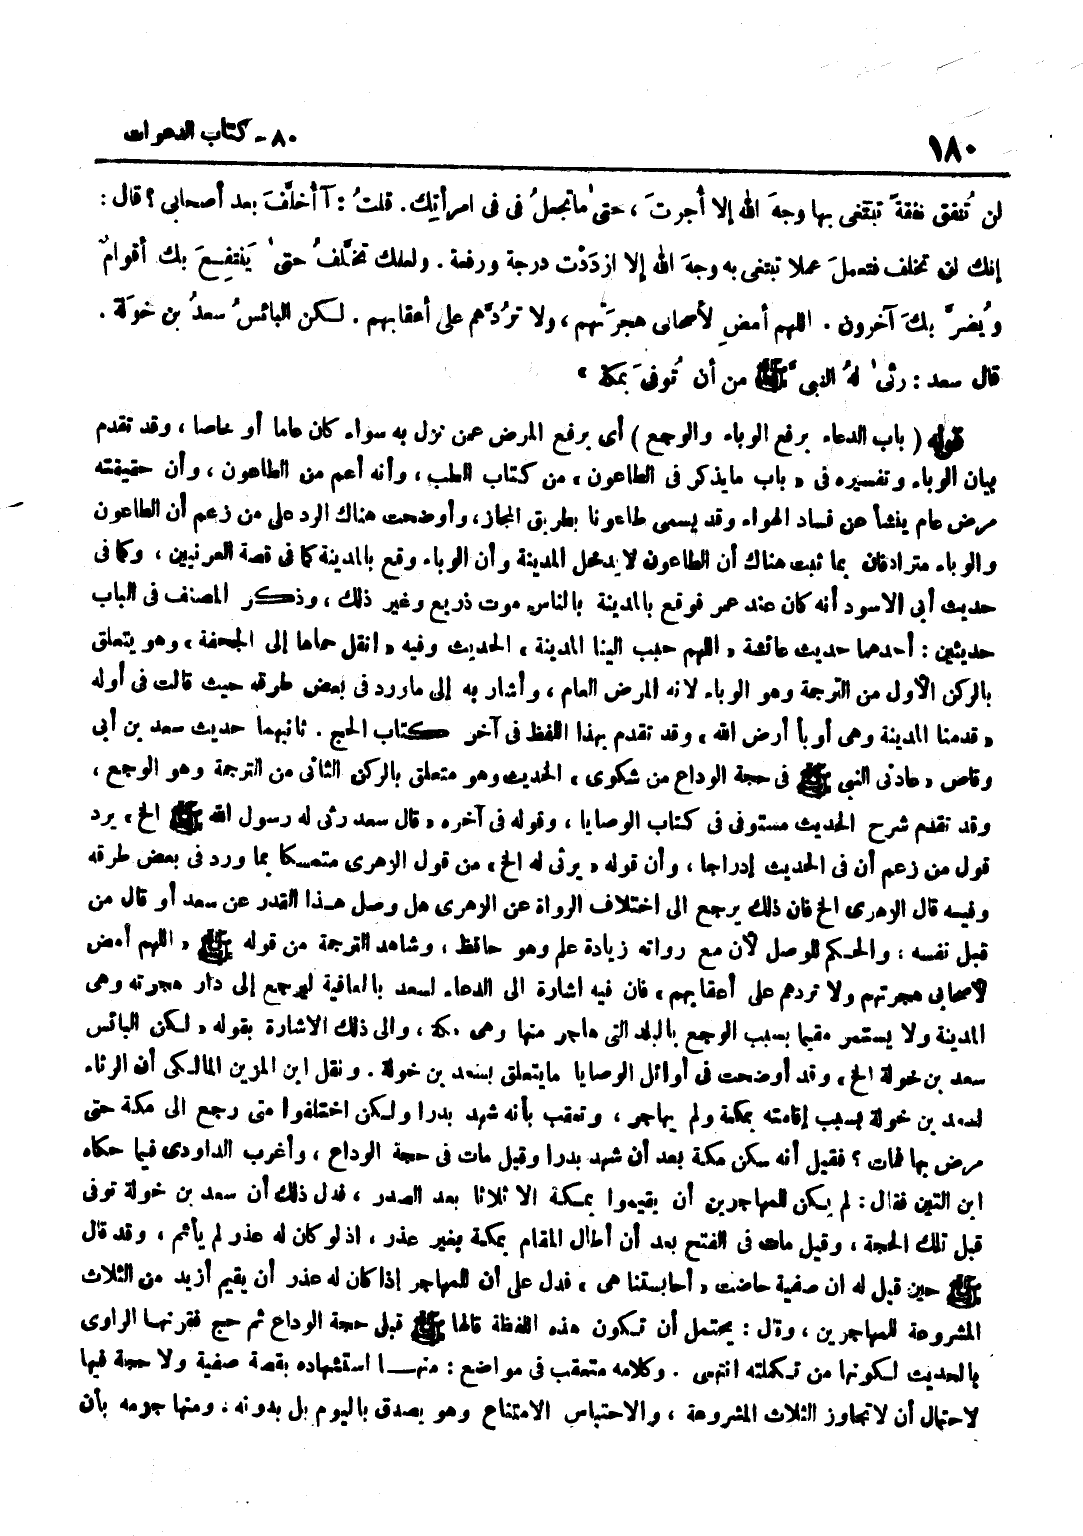 ١٨٠
٨٠- كتاب الدعوات
لن تُنفق نفقةً تبتغى بها وجهَ الله إلا أُجرتَ ، حتىٰ ماتجعلُ فى فى امرأتِك. قلتُ : آأُخلَّفُ بعد أصحابى ؟ قال :
إنك لن تخلف فتعملَ عملا تبتغى به وجهَ الله إلا ازدَدْت درجة ورفعة . ولعلك تخلَّفُ حتىٰ يَنتفِعَ بك أقوامٌ
ويُضرَّ بكَ آخرون . اللهم أمضِ لأصحابى هجرتَهم ، ولا تردَّهم على أعقابهم . لـكن البائسُ سعدُ بن خولَة .
قال سعد : رثىٰ لهُ النبىُّ ﷺ من أن تُوفىَ بمكة »
قوله ( باب الدعاء برفع الوباء والوجع ) أى برفع المرض عمن نزل به سواء كان عاما أو خاصا ، وقد تقدم
بيان الوباء وتفسيره فى « باب مايذكر فى الطاعون » من كتاب الطب ، وأنه أعم من الطاعون ، وأن حقيقته
مرض عام ينشأ عن فساد الهواء وقد يسمى طاعونا بطريق المجاز، وأوضحت هناك الرد على من زعم أن الطاعون
والوباء مترادفان بما ثبت هناك أن الطاعون لايدخل المدينة وأن الوباء وقع بالمدينة كما فى قصة العرنيين ، وكما فى
حديث أبى الاسود أنه كان عند عمر فوقع بالمدينة بالناس موت ذريع وغير ذلك ، وذكر المصنف فى الباب
حديثين : أحدهما حديث عائشة « اللهم حبب الينا المدينة » الحديث وفيه « انقل حماها إلى الجحفة » وهو يتعلق
بالركن الأول من الترجمة وهو الوباء لانه المرض العام ، وأشار به إلى ماورد فى بعض طرقه حيث قالت فى أوله
« قدمنا المدينة وهى أوبأ أرض الله » وقد تقدم بهذا اللفظ فى آخر كتاب الحج . ثانيهما حديث سعد بن أبى
وقاص « عادنى النبى ﷺ فى حجة الوداع من شكوى » الحديث وهو متعلق بالركن الثانى من الترجمة وهو الوجع ،
وقد تقدم شرح الحديث مستوفى فى كتاب الوصايا ، وقوله فى آخره « قال سعد رثى له رسول الله ﷺ الخ » يرد
قول من زعم أن فى الحديث إدراجا ، وأن قوله « يرثى له الخ » من قول الزهرى متمسكا بما ورد فى بعض طرقه
وفيسه قال الزهرى الخ فان ذلك يرجع الى اختلاف الرواة عن الزهرى هل وصل هـذا القدر عن سعد أو قال من
قبل نفسه ، والحكم للوصل لأن مع رواته زيادة علم وهو حافظ ، وشاهد الترجمة من قوله ﷺ « اللهم أمض
لأصحابى هجرتهم ولا تردهم على أعقابهم » فان فيه اشارة الى الدعاء لسعد بالعافية ليرجع إلى دار هجرته وهى
المدينة ولا يستمر مقيما بسبب الوجع بالبلد التى هاجر منها وهى مكة ، والى ذلك الاشارة بقوله « لـكن البائس
سعد بن خولة الخ » وقد أوضحت فى أوائل الوصايا مايتعلق بسعد بن خولة . ونقل ابن المزين المالـكى أن الرثاء
لسعد بن خولة بسبب إقامته بمكة ولم يهاجر ، وتعقب بأنه شهد بدرا ولكن اختلفوا متى رجع الى مكة حتى
مرض بها فمات ؟ فقيل أنه سكن مكة بعد أن شهد بدرا وقيل مات فى حجة الوداع ، وأغرب الداودى فيما حكاه
ابن التين فقال : لم يكن للمهاجرين أن يقيموا بمـكة الا ثلاثا بعد الصدر ، فدل ذلك أن سعد بن خولة توفى
قبل تلك الحجة ، وقيل مات فى الفتح بعد أن أطال المقام بمكة بغير عذر ، اذ لو كان له عذر لم يأثم ، وقد قال
ﷺ حين قيل له ان صفية حاضت « أحابستنا هى » فدل على أن للمهاجر إذا كان له عذر أن يقيم أزيد من الثلاث
المشروعة للمهاجرين ، وقال : يحتمل أن تـكون هذه اللفظة قالها ﷺ قبل حجة الوداع ثم حج فقرنهـا الراوى
بالحديث لـكونها من تـكملته انتهى . وكلامه متعقب فى مواضع : منهـا استشهاده بقصة صفية ولا حجة فيها
لاحتمال أن لاتجاوز الثلاث المشروعة ، والاحتباس الامتناع وهو يصدق باليوم بل بدونه . ومنها جزمه بأن